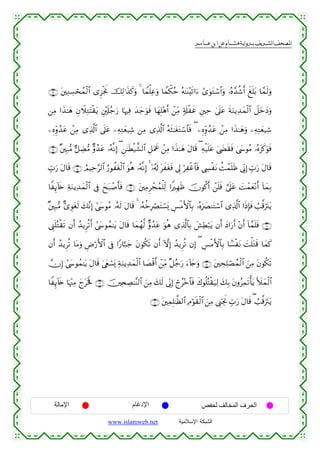 المصحف الشريف برواية هشام عن ابن عامر
وَلَمَّا بَلَغَ أَشُدَّهُۥ وَٱسْتَوَىٰٓ ءَاتَيْنَـٰهُ حُكْمًا وَعِلْمًا ۚ وَكَذَٰلِكَ نَجْزِى ٱلْمُحْسِنِينَ
وَدَخَلَ ٱلْمَدِينَةَ عَلَىٰ حِينِ غَفْلَةٍ مِّنْ أَهْلِهَا فَوَجَدَ فِيهَا رَجُلَيْنِ يَقْتَتِلَانِ هَـٰذَا مِن
شِيعَتِهِۦ وَهَـٰذَا مِنْ عَدُوِّهِۦ ۖ فَٱسْتَغَـٰثَهُ ٱلَّذِى مِن شِيعَتِهِۦ عَلَى ٱلَّذِى مِنْ عَدُوِّهِۦ
فَوَكَزَهُۥ مُوسَىٰ فَقَضَىٰ عَلَيْهِ ۖ قَالَ هَـٰذَا مِنْ عَمَلِ ٱلشَّيْطَـٰنِ ۖ إِنَّهُۥ عَدُوٌّ مُّضِلٌّ مُّبِينٌ
قَالَ رَبِّ إِنِّى ظَلَمْتُ نَفْسِى فَٱغْفِرْ لِى فَغَفَرَ لَهُۥٓ ۚ إِنَّهُۥ هُوَ ٱلْغَفُورُ ٱلرَّحِيمُ قَالَ رَبِّ
بِمَآ أَنْعَمْتَ عَلَىَّ فَلَنْ أَكُونَ ظَهِيرًا لِّلْمُجْرِمِينَ فَأَصْبَحَ فِى ٱلْمَدِينَةِ خَآئِفًا
يَتَرَقَّبُ فَإِذَا ٱلَّذِى ٱسْتَنصَرَهُۥ بِٱلْأَمْسِ يَسْتَصْرِخُهُۥ ۚ قَالَ لَهُۥ مُوسَىٰٓ إِنَّكَ لَغَوِىٌّ مُّبِينٌ
فَلَمَّآ أَنْ أَرَادَ أَن يَبْطِشَ بِٱلَّذِى هُوَ عَدُوٌّ لَّهُمَا قَالَ يَـٰمُوسَىٰٓ أَتُرِيدُ أَن تَقْتُلَنِى
كَمَا قَتَلْتَ نَفْسًا بِٱلْأَمْسِ ۖ إِن تُرِيدُ إِلَّآ أَن تَكُونَ جَبَّارًا فِى ٱلْأَرْضِ وَمَا تُرِيدُ أَن
تَكُونَ مِنَ ٱلْمُصْلِحِينَ وَجَآءَ رَجُلٌ مِّنْ أَقْصَا ٱلْمَدِينَةِ يَسْعَىٰ قَالَ يَـٰمُوسَىٰٓ إِنَّ
ٱلْمَلَأَ يَأْتَمِرُونَ بِكَ لِيَقْتُلُوكَ فَٱخْرُجْ إِنِّى لَكَ مِنَ ٱلنَّـٰصِحِينَ فَخَرَجَ مِنْهَا خَآئِفًا
يَتَرَقَّبُ ۖ قَالَ رَبِّ نَجِّنِى مِنَ ٱلْقَوْمِ ٱلظَّـٰلِمِينَ
الحرف المخالف لحفص الإدغام الإمالة
الشبكة الإسلامية www.islamweb.net